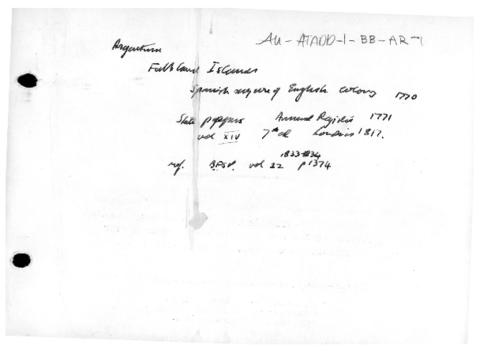 AU-ATADD-1-BB-AR-1
Argentina
Falkland Islands
Spanish seizure of English colony 1770
State pappers Annual Register 1771
vol XIV 7th ed London 1817.
1833-1834
ref. BFSP. vol 22 p1374